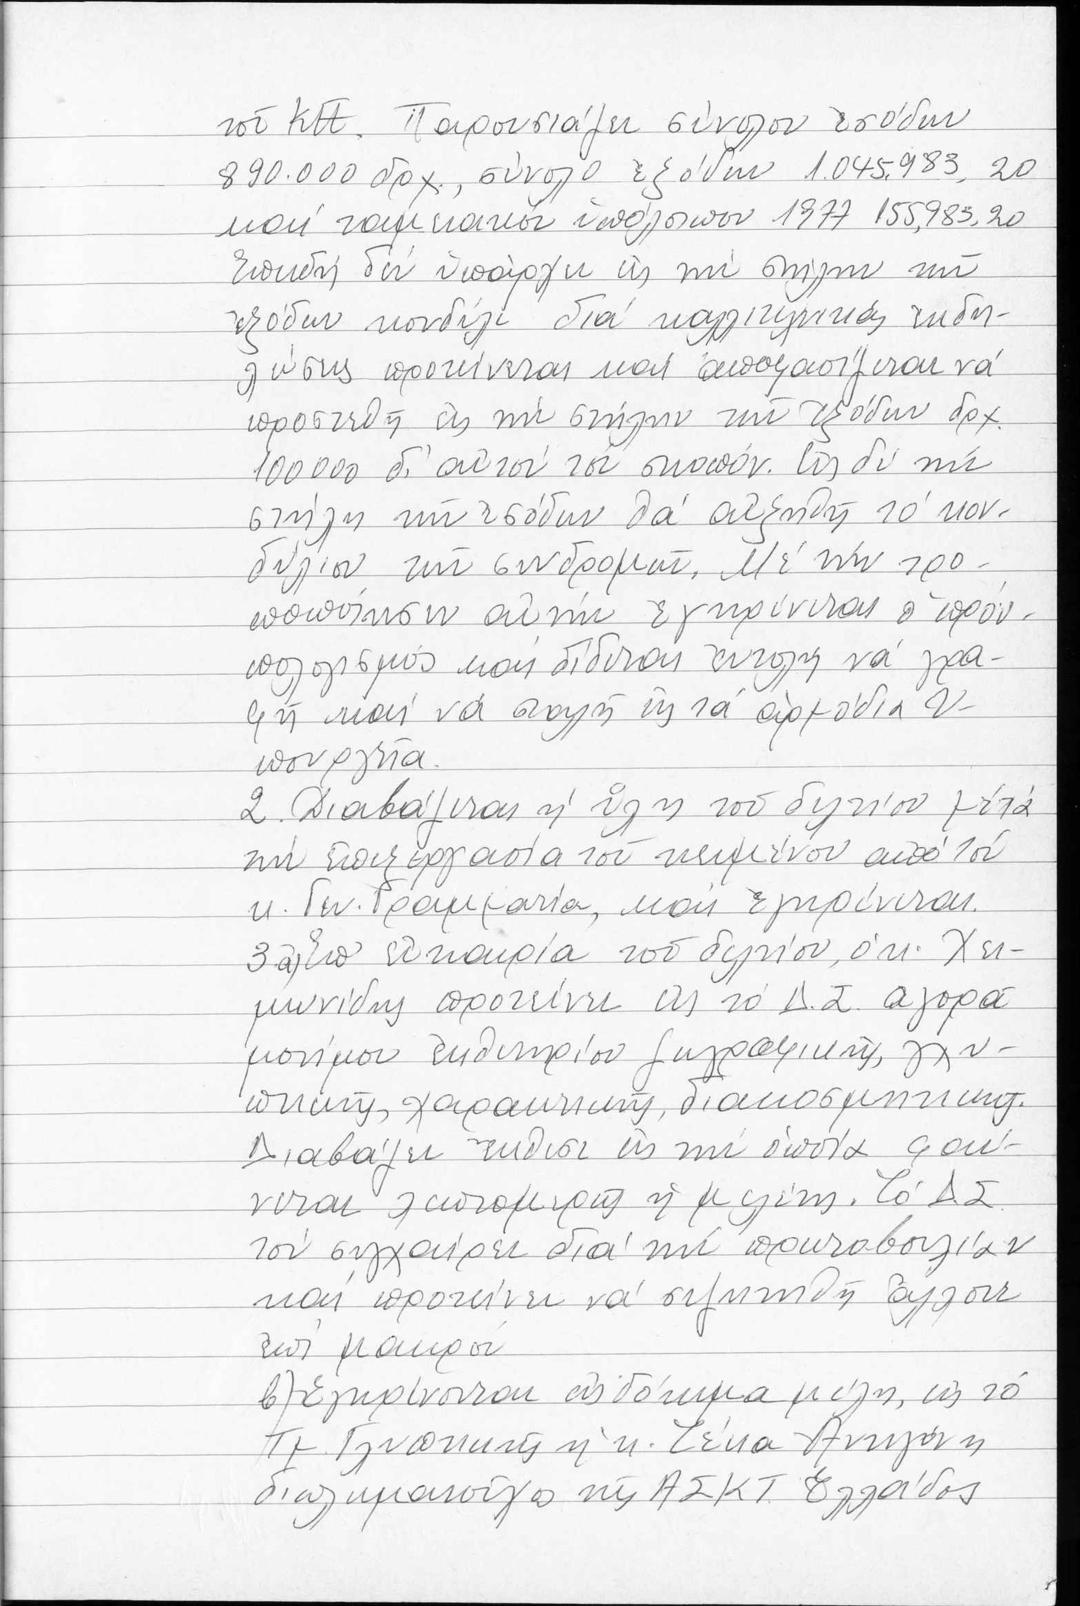 τοῦ ΚΠΕ. Παρουσιάζει σύνολον ἐσόδων
890.000 δρχ., σύνολο ἐξόδων 1.045.983,20
καί ταμειακόν ὑπόλοιπον 1977 155,983,20
Ἐπειδή δέν ὑπάρχει εἰς τήν στήλην τῶν
ἐξόδων κονδύλι διά καλλιτεχνικάς ἐκδη-
λώσεις προτείνεται καί ἀποφασίζεται νά
προστεθῆ εἰς τήν στήλην τῶν ἐξόδων δρχ.
100000 δι' αὐτόν τόν σκοπόν. Εἰς δέ τήν
στήλη τῶν ἐσόδων θά αὐξηθῆ τό κον-
δύλιον τῶν συνδρομῶν. Μέ τήν τρο-
ποποίησιν αὐτήν ἐγκρίνεται ὁ προϋ-
πολογισμός καί δίδεται ἐντολή νά γρα-
φῆ καί νά σταλῆ εἰς τά ἁρμόδια Ὑ-
πουργεῖα.
2. Διαβάζεται ἡ ὕλη τοῦ δελτίου μετά
τήν ἐπεξεργασία τοῦ κειμένου ἀπό τόν
κ. Γεν. Γραμματέα, καί ἐγκρίνεται.
3 α) Ἐπ' εὐκαιρία τοῦ δελτίου, ὁ κ. Χει-
μωνίδης προτείνει εἰς τό Δ.Σ. ἀγορά
μονίμου ἐκθετηρίου ζωγραφικῆς, γλυ-
πτικῆς, χαρακτικῆς, διακοσμητικῆς.
Διαβάζει ἔκθεσι εἰς τήν ὁποία φαί-
νεται λεπτομερῶς ἡ μελέτη. Τό Δ.Σ.
τόν συγχαίρει διά τήν πρωτοβουλίαν
καί προτείνει νά συζητηθῆ ἄλλοτε
ἐπί μακρόν
β) Ἐγκρίνονται ὡς δόκιμα μέλη, εἰς τό
Τμ. Γλυπτικῆς ἡ κ.
διπλωματοῦχος τῆς ΑΣΚΤ Ἑλλάδος